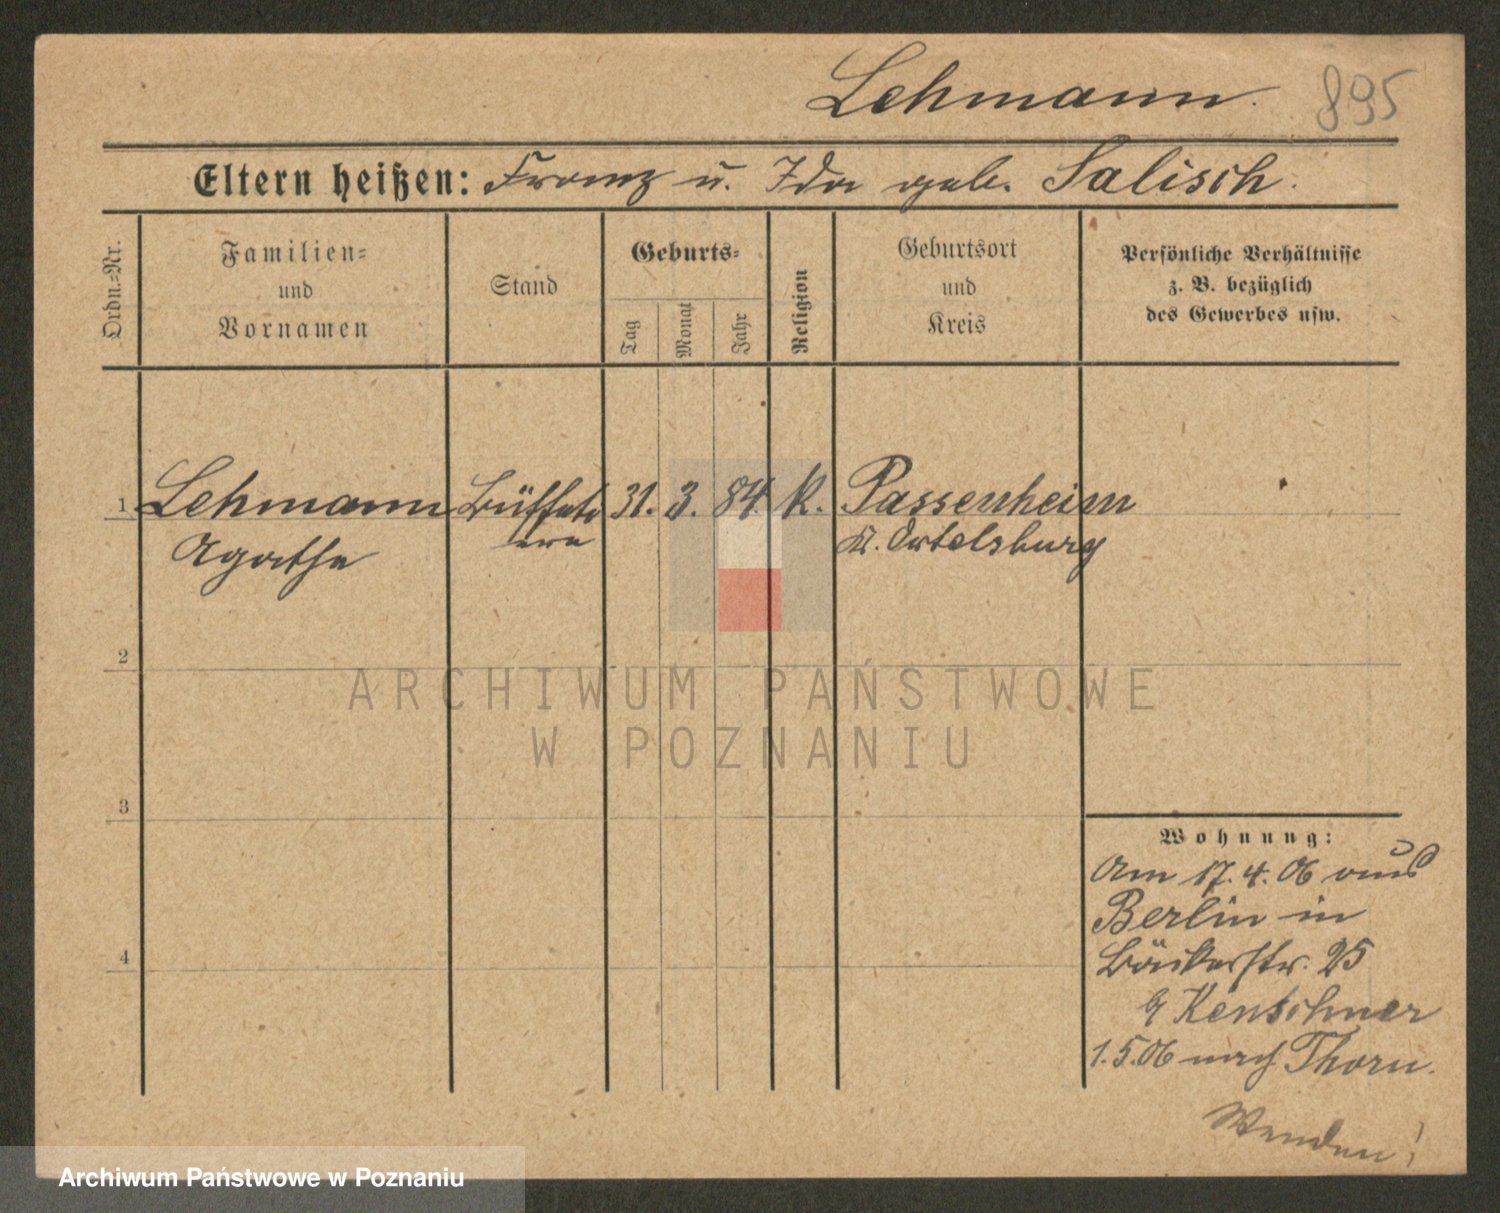 Lehmann. 895
Eltern heißen: Franz u. Ida geb. Salisch.
Ordn.-Nr.
Familien-
und
Vornamen
Stand
Geburts-
Tag
Monat
Jahr
Religion
Geburtsort
und
Kreis
Persönliche Verhältnisse
z. B. bezüglich
des Gewerbes usw.
1 Lehmann Büffeti 31. 3. 84. k. Passenheim
Agathe ere Kr. Ortelsburg
2
ARCHIWUM PAŃSTWOWE
W POZNANIU
3
Wohnung:
Am 17. 4. 06 aus
Berlin in
4
Bäckerstr. 25
b/ Kentschner
1. 5. 06 nach Thorn.
Wenden!
Archiwum Państwowe w Poznaniu